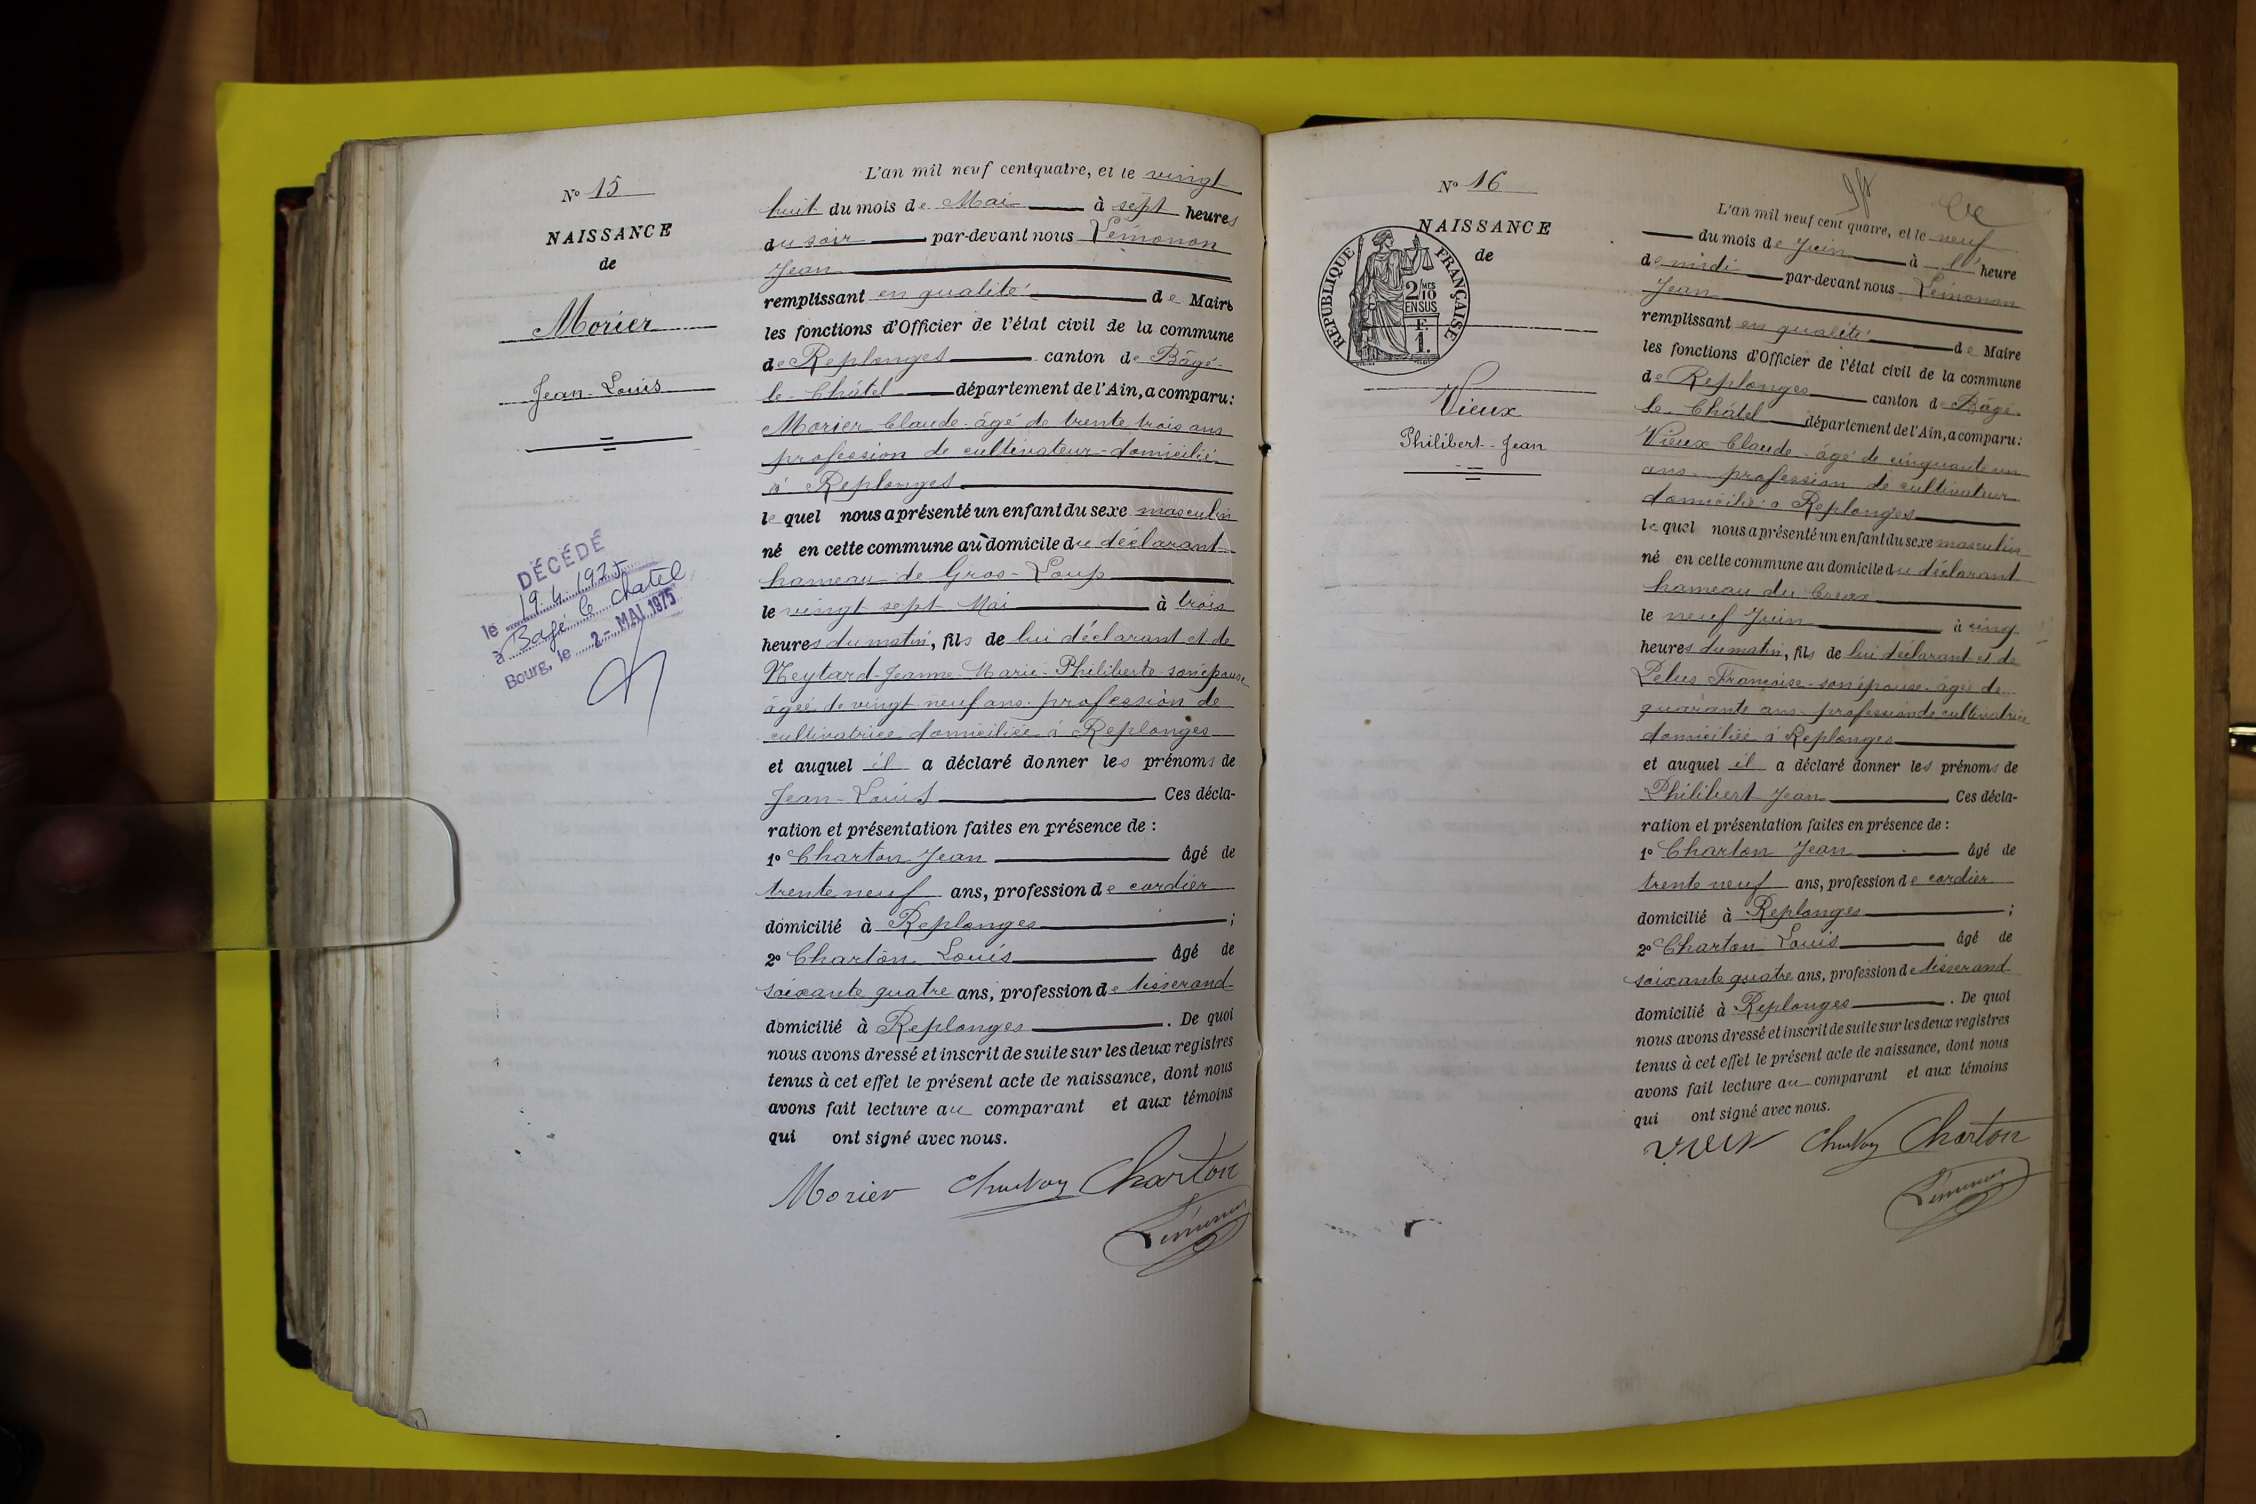 N° 15
NAISSANCE
de
Morier
Jean-Louis
DÉCÉDÉ
le 19.4.1975
à Bagé le Chatel
Bourg, le 2 - MAI 1975
L'an mil neuf cent quatre, et le vingt
huit du mois de Mai à sept heures
du soir par-devant nous Lémonon
Jean
remplissant en qualité de Maire
les fonctions d'Officier de l'état civil de la commune
de Replonges canton de Bâgé-
le-Châtel département de l'Ain, a comparu:
Morier Claude - âgé de trente trois ans
profession de cultivateur - domicilié
à Replonges
le quel nous a présenté un enfant du sexe masculin
né en cette commune au domicile du déclarant
hameau de Gros-Loup
le vingt sept Mai à trois
heures du matin, fils de lui déclarant et de
Neytard-Jeanne-Marie-Philiberte son épouse
âgée de vingt neuf ans profession de
cultivatrice domiciliée à Replonges
et auquel il a déclaré donner les prénoms de
Jean-Louis Ces décla-
ration et présentation faites en présence de :
1° Charton Jean âgé de
trente neuf ans, profession de cordier
domicilié à Replonges ;
2° Charton Louis âgé de
soixante quatre ans, profession de tisserand
domicilié à Replonges . De quoi
nous avons dressé et inscrit de suite sur les deux registres
tenus à cet effet le présent acte de naissance, dont nous
avons fait lecture au comparant et aux témoins
qui ont signé avec nous.
Morier Charton Charton
Lémonon
N° 16
NAISSANCE
de
RÉPUBLIQUE FRANÇAISE
2/10 MES
EN SUS
F.
1.
Vieux
Philibert-Jean
L'an mil neuf cent quatre, et le neuf
du mois de Juin à l' heure
de midi par-devant nous Lémonon
Jean
remplissant en qualité de Maire
les fonctions d'Officier de l'état civil de la commune
de Replonges canton de Bâgé-
le-Châtel département de l'Ain, a comparu:
Vieux Claude - âgé de cinquante un
ans - profession de cultivateur
domicilié à Replonges
le quel nous a présenté un enfant du sexe masculin
né en cette commune au domicile du déclarant
hameau du Creux
le neuf Juin à cinq
heures du matin, fils de lui déclarant et de
Pelus Françoise son épouse âgée de
quarante ans profession de cultivatrice
domiciliée à Replonges
et auquel il a déclaré donner les prénoms de
Philibert Jean Ces décla-
ration et présentation faites en présence de :
1° Charton Jean âgé de
trente neuf ans, profession de cordier
domicilié à Replonges ;
2° Charton Louis âgé de
soixante quatre ans, profession de tisserand
domicilié à Replonges . De quoi
nous avons dressé et inscrit de suite sur les deux registres
tenus à cet effet le présent acte de naissance, dont nous
avons fait lecture au comparant et aux témoins
qui ont signé avec nous.
Charton Charton
Lémonon